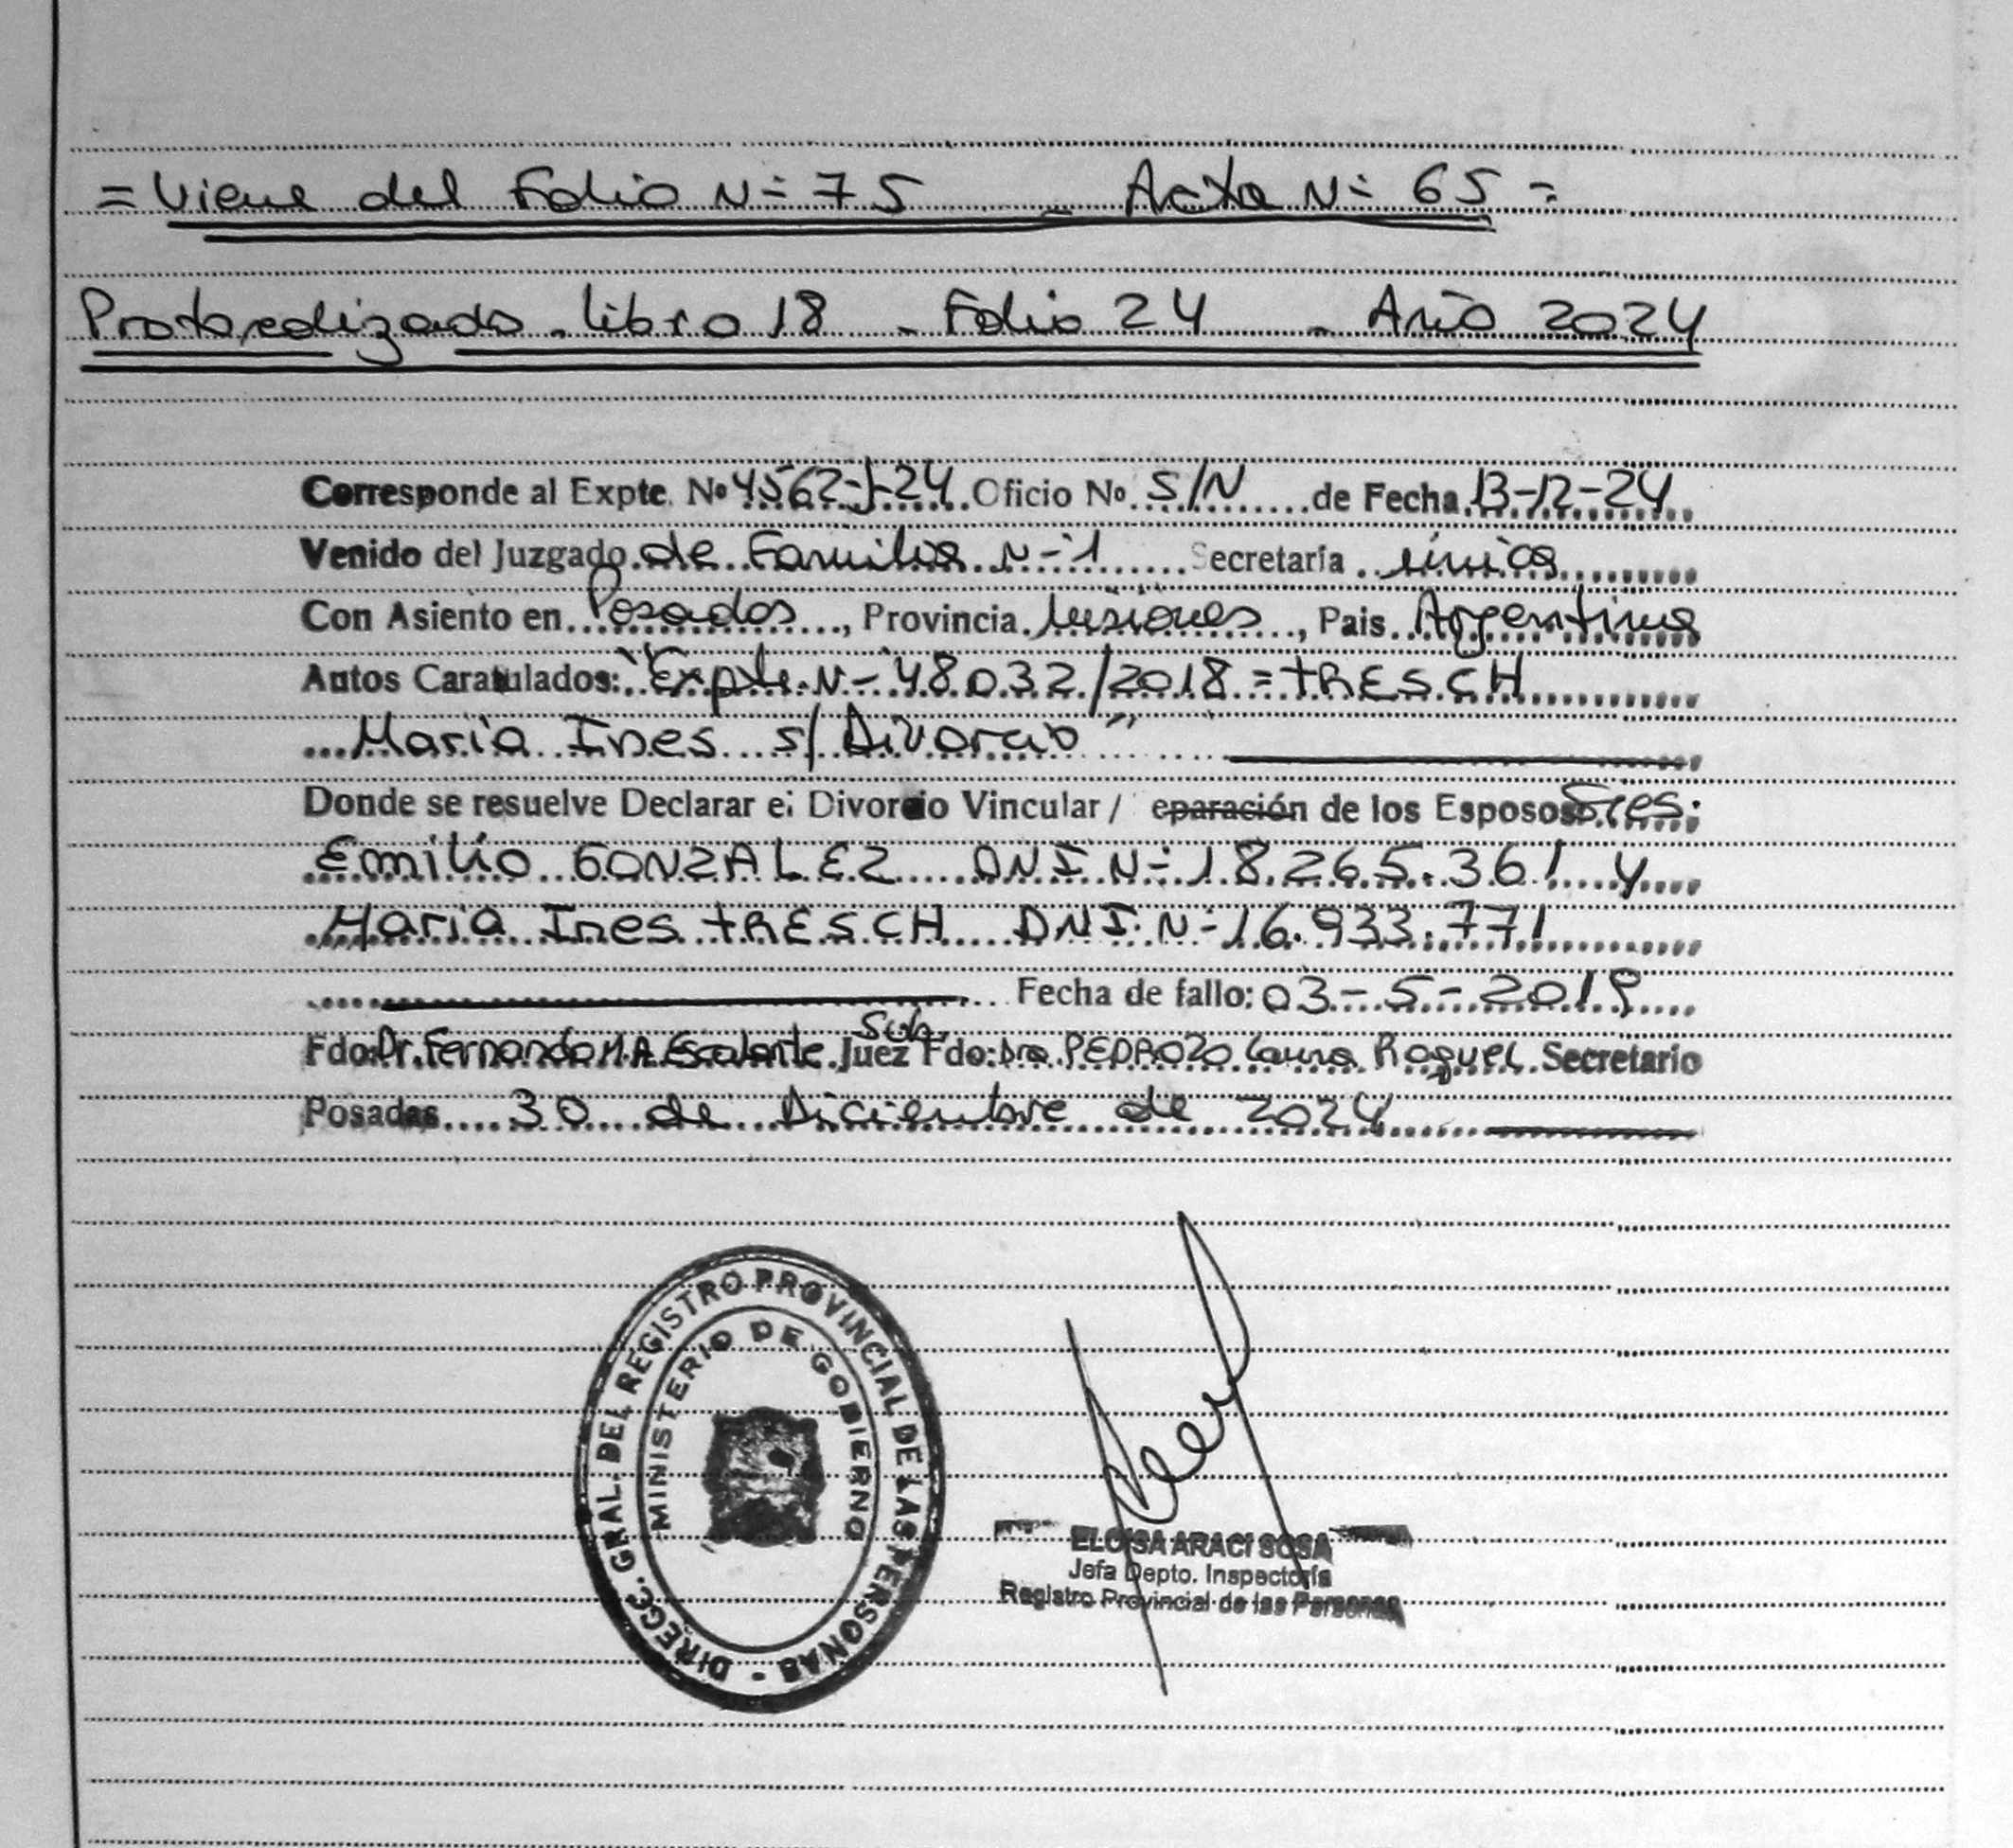 = Viene del Folio N= 75 - Acta N= 65 =
Protocolizado. Libro 18 - Folio 24 - Año 2024
Corresponde al Expte. Nº 4562-J-24 Oficio No. S/N de Fecha 13-12-24
Venido del Juzgado de Familia N=1 Secretaría única
Con Asiento en Posadas, Provincia Misiones, Pais Argentina
Autos Caratulados: "Expte. N= 48032/2018 = TRESCH
Maria Ines s/ Divorcio"
Donde se resuelve Declarar el Divorcio Vincular / eparación de los Esposos Sres:
Emilio GONZALEZ DNI N= 18.265.361 y
Maria Ines TRESCH DNI N= 16.933.771
Fecha de fallo: 03-5-2019
Sub.
Fdo: Dr. Fernando M.A. Escalante Juez Fdo: Dra. PEDROZO Laura Raquel Secretario
Posadas 30 de Diciembre de 2024
DIRECC. GRAL. DEL REGISTRO PROVINCIAL DE LAS PERSONAS -
MINISTERIO DE GOBIERNO
ELOISA ARACI SOSA
Jefa Depto. Inspectoría
Registro Provincial de las Personas